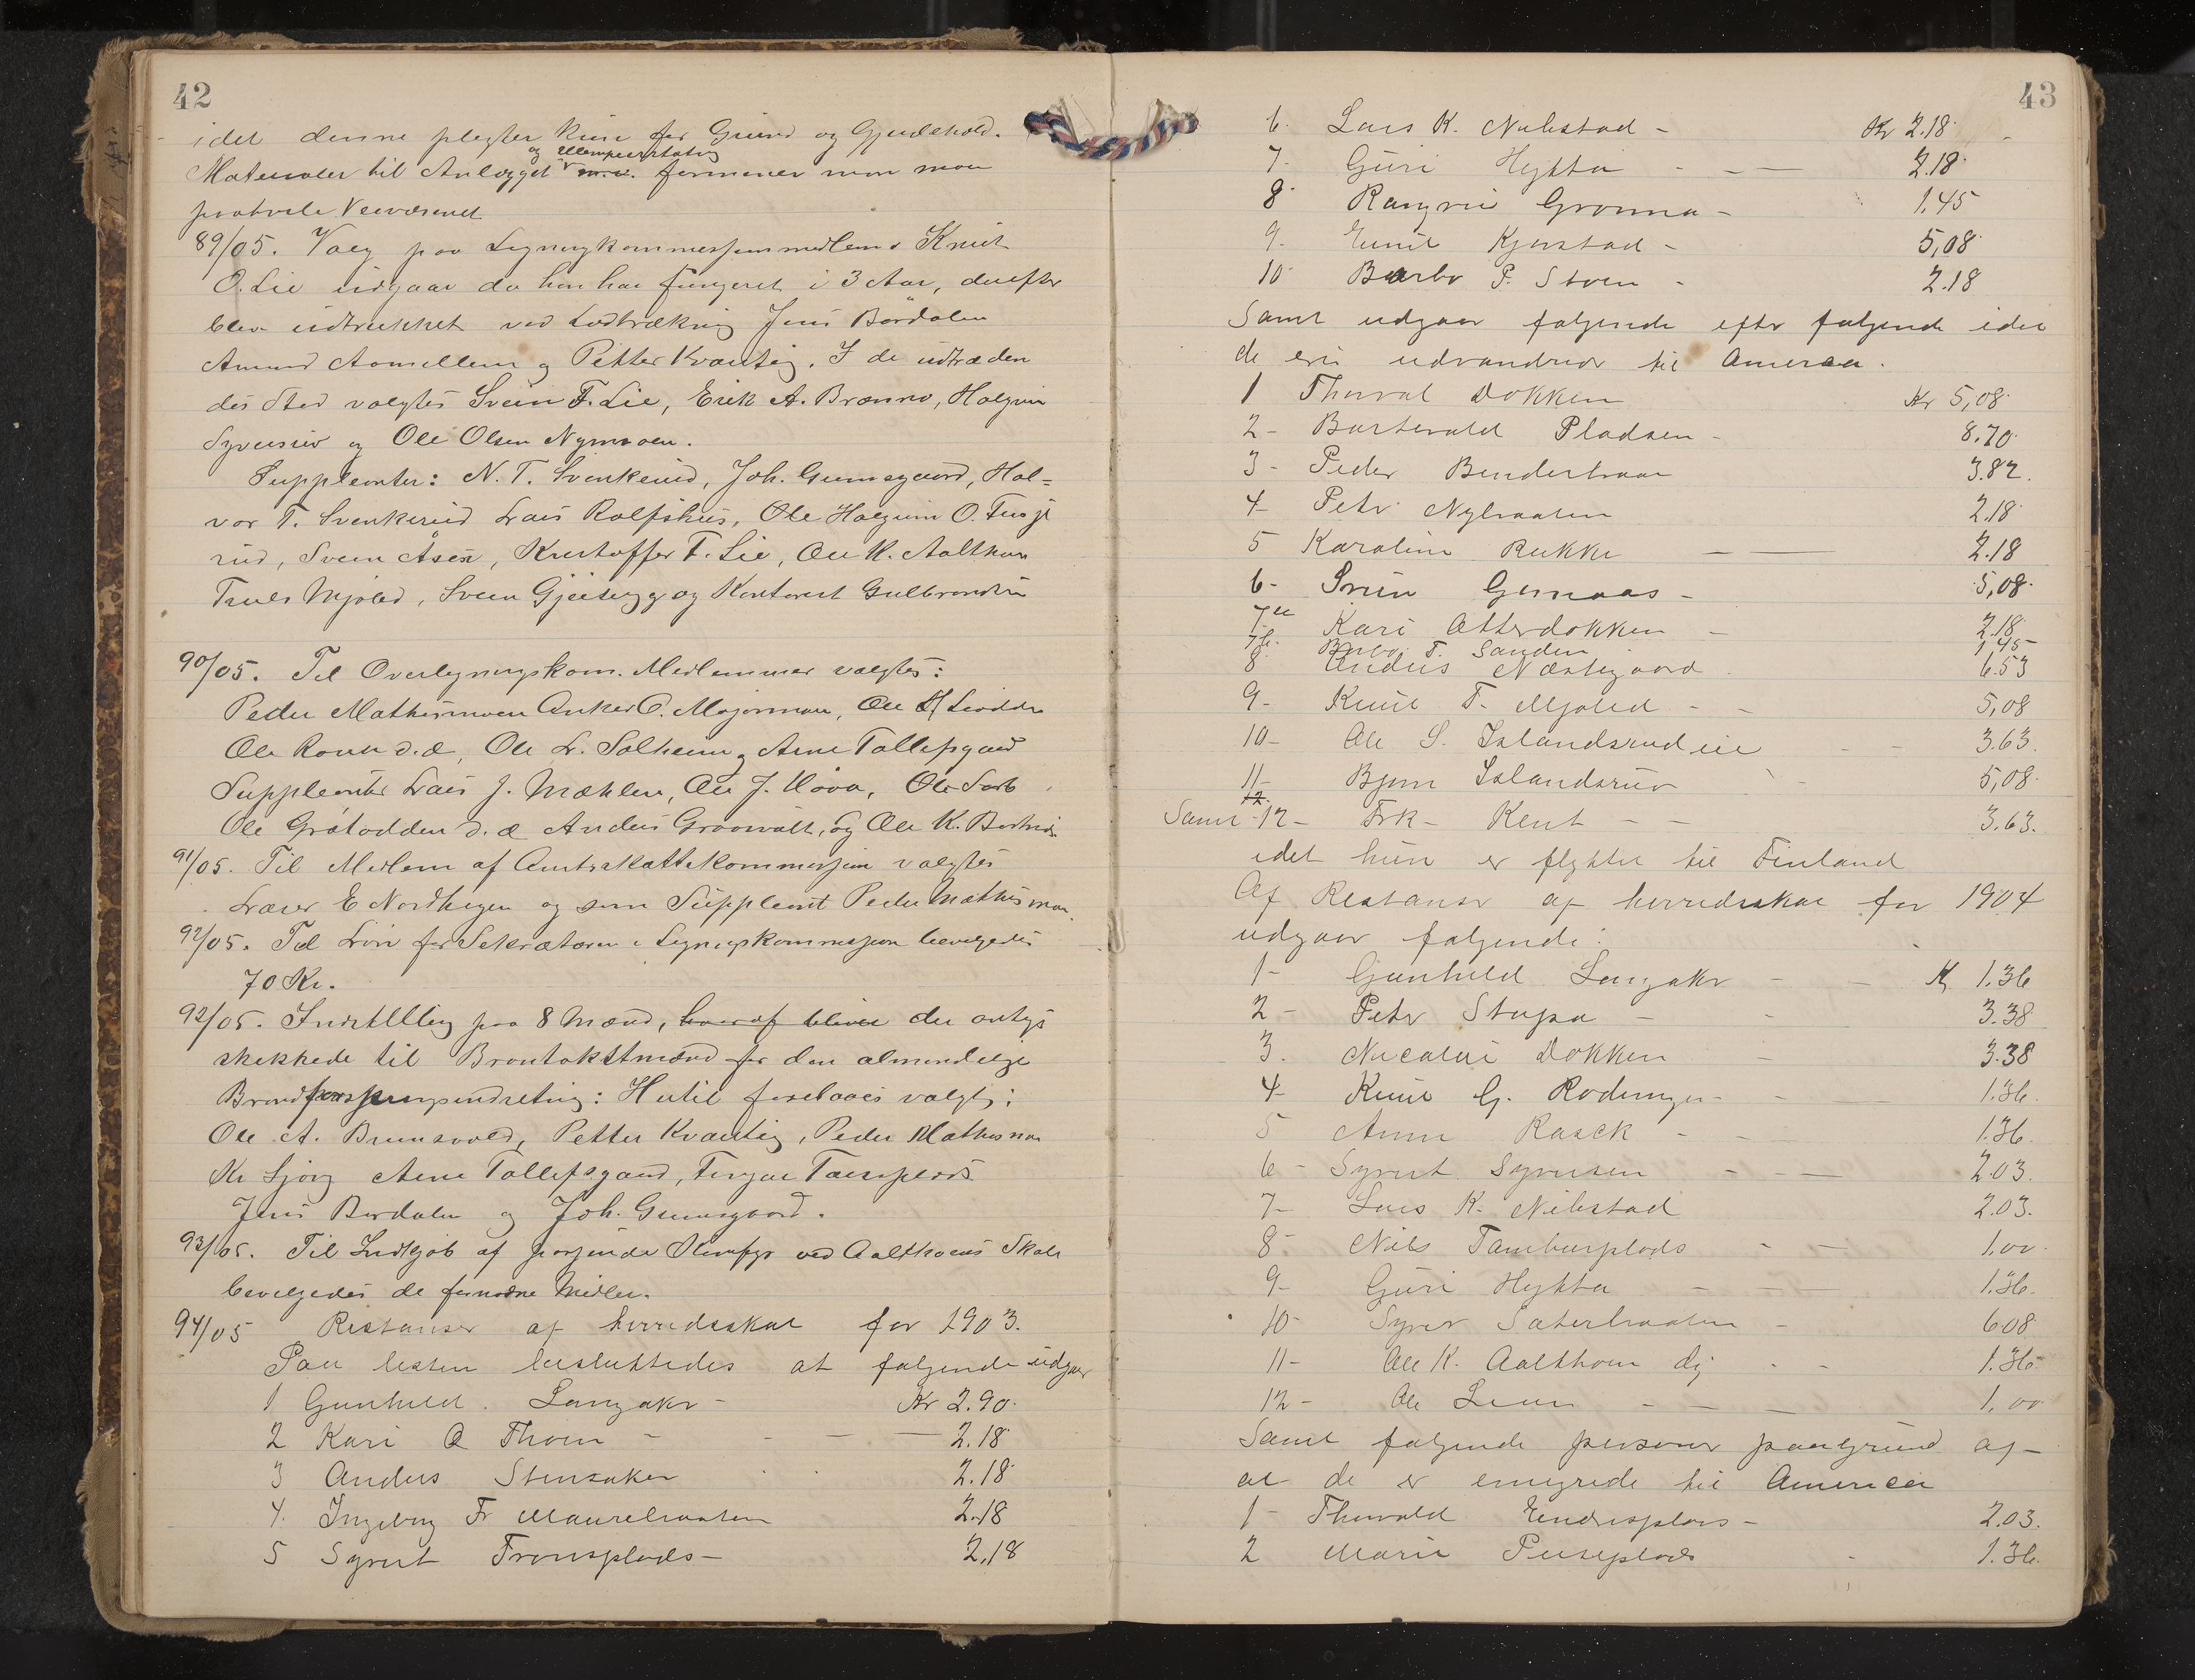 42
idet denne plegter kun for Grund og Gjerdehold.
og Ellempeerstatnig
Materialer til Anlægget m.v. formener man maa
paahvile Veivæsenet
89/05. Valg paa Ligningkommessjonsmedlem Knut
O. Lie udgaar da han har fungeret i 3 Aar, derefter
blev udtrukket ved Lodtrækning Jens Børdalen
Amund Aamellem og Petter Kvantig. I de udtræden
des Sted valgtes Svein F. Lie, Erik A. Brænno, Halgrim
og Ole Olsen Nymoen.
Suppleanter: N. T. Svenkerud, Joh. Gunnegaard, Hal=
vor T. Svenkerud Lars Rolfshus, Ole Halgrim O. Tusje
rud, Svein Åsen, Kristoffer F. Lie, Ole K. Aalthon
Truls Mjøled, Svein og Kontorist Gulbrandsen
90/05. Til Overligningskom. Medlemmer valgtes:
Peder Mathismoen Anker O. Majormoen, Ole H
Ole d. æ, Ole L. Solheim og Arne Tollefsgaard
Suppleanter Lars J. Mæhlen, Ole J. Hova, Ole
Ole Gråtodden d. æ Anders og Ole K.
91/05. Til Medlem af Amtsskattekommessjon valgtes
Lærer E Nordhagen og som Suppleant Peder Mathismoen
92/05. Til Løn for Sekretæren i Ligningskommessjon bevilgedes
70 Kr.
92/05. Indstilling paa 8 Mænd, hvoraf bliver der antys
skekkede til Brantakstmænd for den almindelige
Brandforsikringsindretning: Hertil foreslaaes valgt:
Ole A. Brunsvold, Petter Kvantig, Peder Mathismoen
Arne Tollefsgaard,
Jens Børdalen og Joh. Gunnegaard.
93/05. Til Indkjøb af ved Aalthoens Skole
bevilgedes de fornødne Midler.
94/05 Restanser af herredsskat for 1903.
Paa listen besluttedes at følgende udgaar
1 Gunhild Langaker - Kr 2.90.
2 Kari O Thoen - - - 2.18
3 Anders Stensaker 2.18
4. Ingeborg Fr 2.18
5 Syvert Fronsplads - 2.18
43
6. Lars K. Nubstad - Kr 2.18
7- Guri Hytta - - - 2.18
8 Rangni Gronna - 1.45
9- Kjerstad - 5,08
10 Barbo P. Stoen - 2.18
Samt udgaar følgende efter følgende idet
de ere udvandrede til America.
1 Thorval Dokken Kr 5,08
2- Pladsen - 8.70
3- Peder Benderbraat 3.82.
4- Petr Nybraaten 2.18
5 Karolin Rukke - - 2.18
6- Svein - 5,08
7a Kari Atterdokken - 2.18
7b. Barbo T. Sanden 1,45
8 Anders Næstegaard 6.53
9- Knut T. Mjøled - - 5,08
10- Ole S. Islandsrudeie - - 3.63.
11- Bjørn Islandsrud - 5,08
12.
Samt -12- Frk- Kent - - 3.63.
idet hun er flyttet til Finland
Af Restanser af herredsskat for 1904
udgaar følgende:
1- Gunhild Langaker - - K 1.36
2- Peter Stugaa - - 3.38
3. Nicolai Dokken - 3.38
4- Knut G. - - 1.36.
5 Anne Rasck - - 1.36.
6- Syvert Syversen - - - 2.03.
7- Lars K. Nibstad 2.03.
8- Nils Tamburplads - - 1.00
9- Guri Hytta - - - 1.36.
10- Syver Sæterbraaten - 6.08
11- Ole K. Aalthoen dy - - 1.36
12- Ole - - - 1,00
Samt følgende personer paagrund af-
at de er emigrede til America
1- Thorvald Endresplads - 2.03.
2 Marie - 1.36.